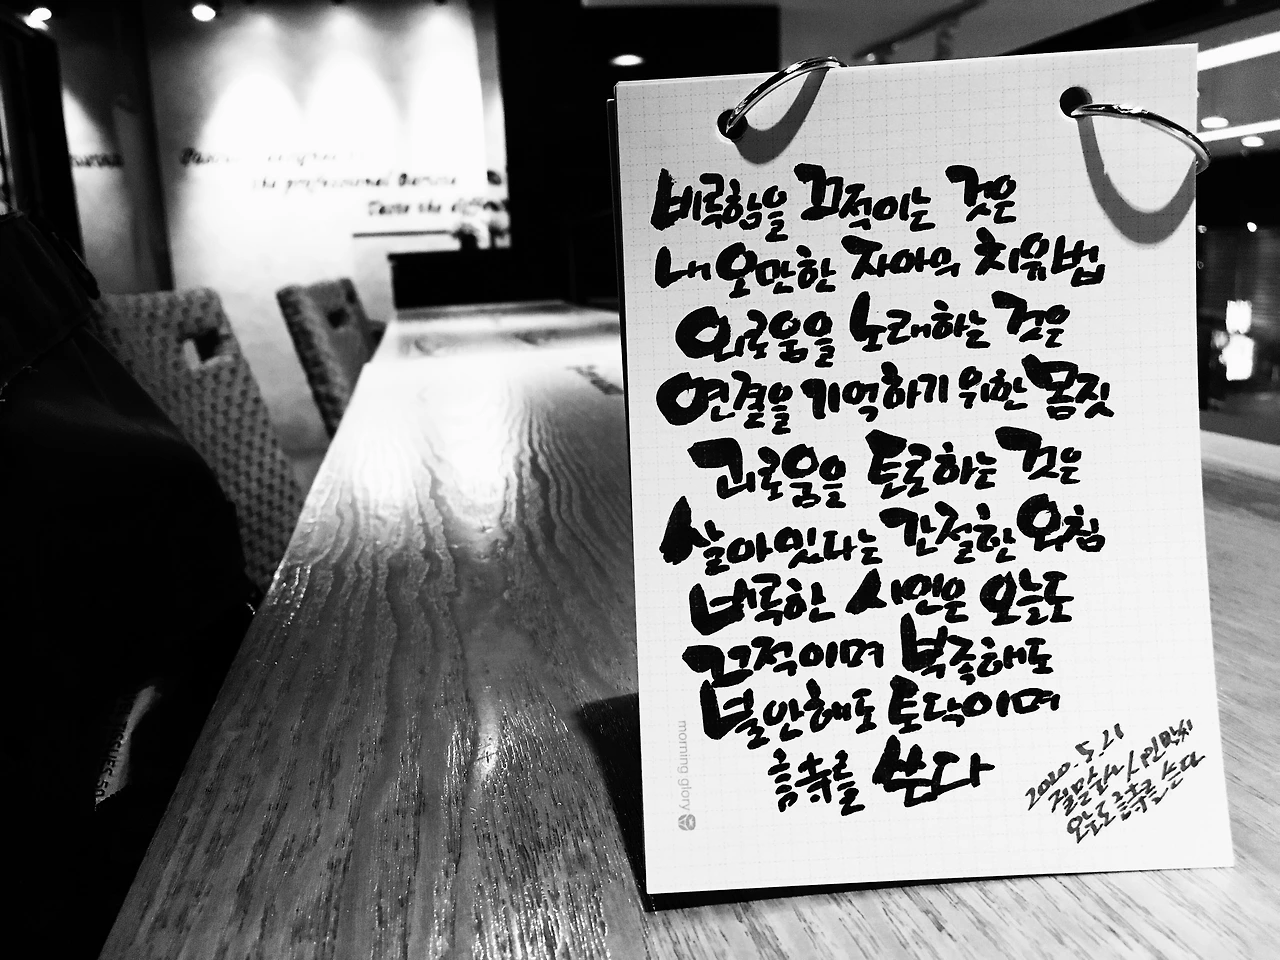 비룩함을 끄적이는 것은
내 오만한 자아의 치유법
외로움을 노래하는 것은
연결을 기억하기 위한 몸짓
괴로움을 토로하는 것은
살아있다는 간절한 외침
비룩한 시인은 오늘도
끄적이며 부족해도
불안해도 토닥이며
詩를 쓴다
2020.5.21
시인
오늘도 詩를 쓴다
morning glory
the professional Barista
Taste the